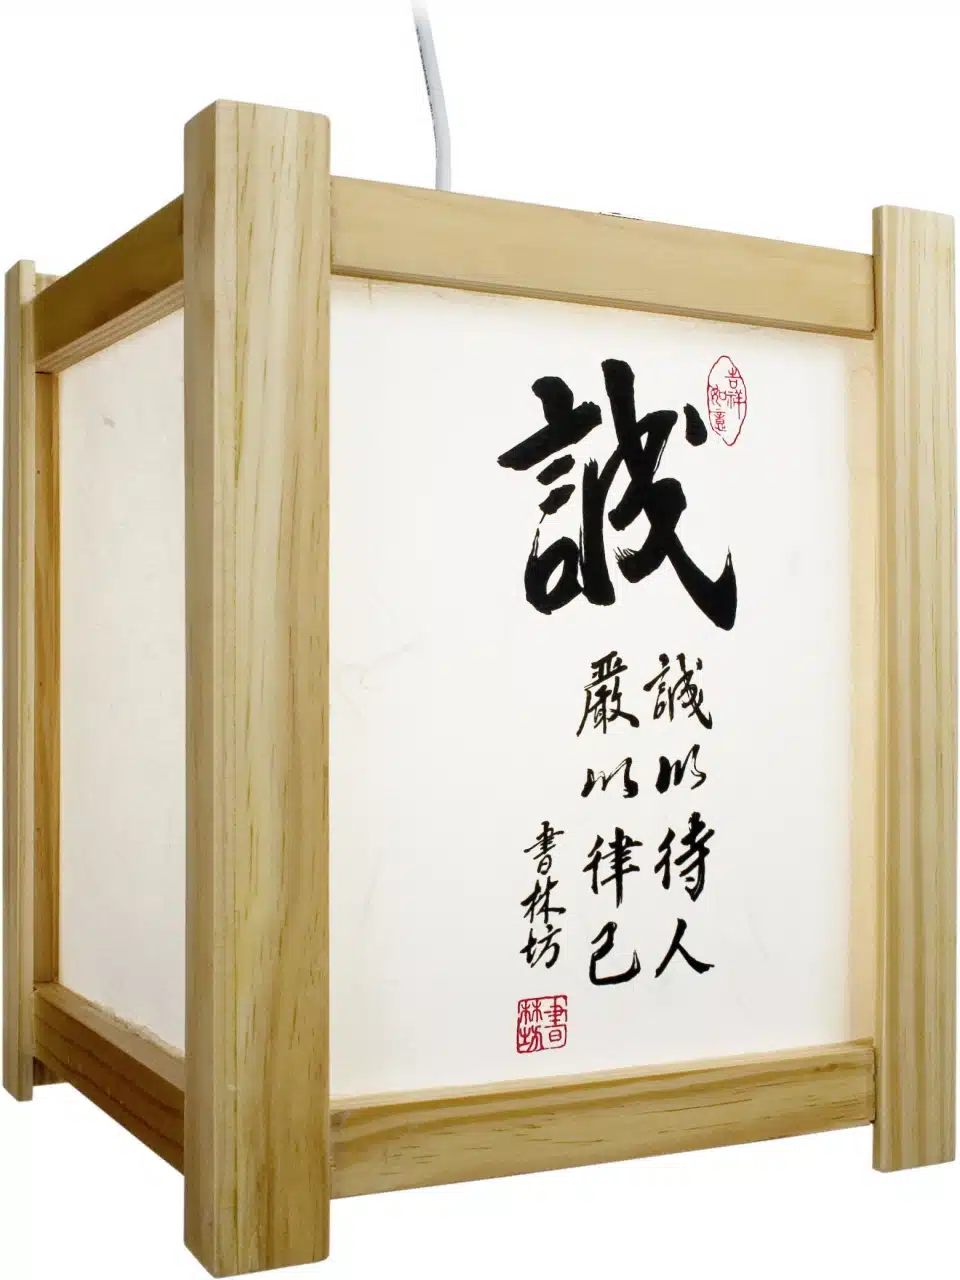 誠
吉祥如意
誠以待人
嚴以律己
書林坊
書林坊